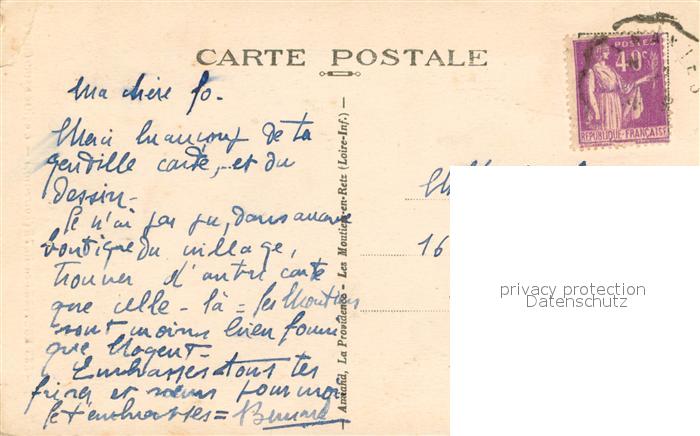 CARTE POSTALE
POSTES
40c
REPUBLIQUE-FRANÇAISE
Ma chère Jo-
Merci beaucoup de ta
gentille carte, et du
dessin-
Je n'ai pas pu, dans aucune
boutique du village,
trouver d'autre carte
que celle-là = Les Moutiers
sont moins bien fourni
que Nogent-
Embrasses tous tes
frères et soeurs pour moi
je t'embrasses = Bernard
Armafid, La Providence - Les Moutiers-en-Retz (Loire-Inf.) -
16
privacy protection
Datenschutz